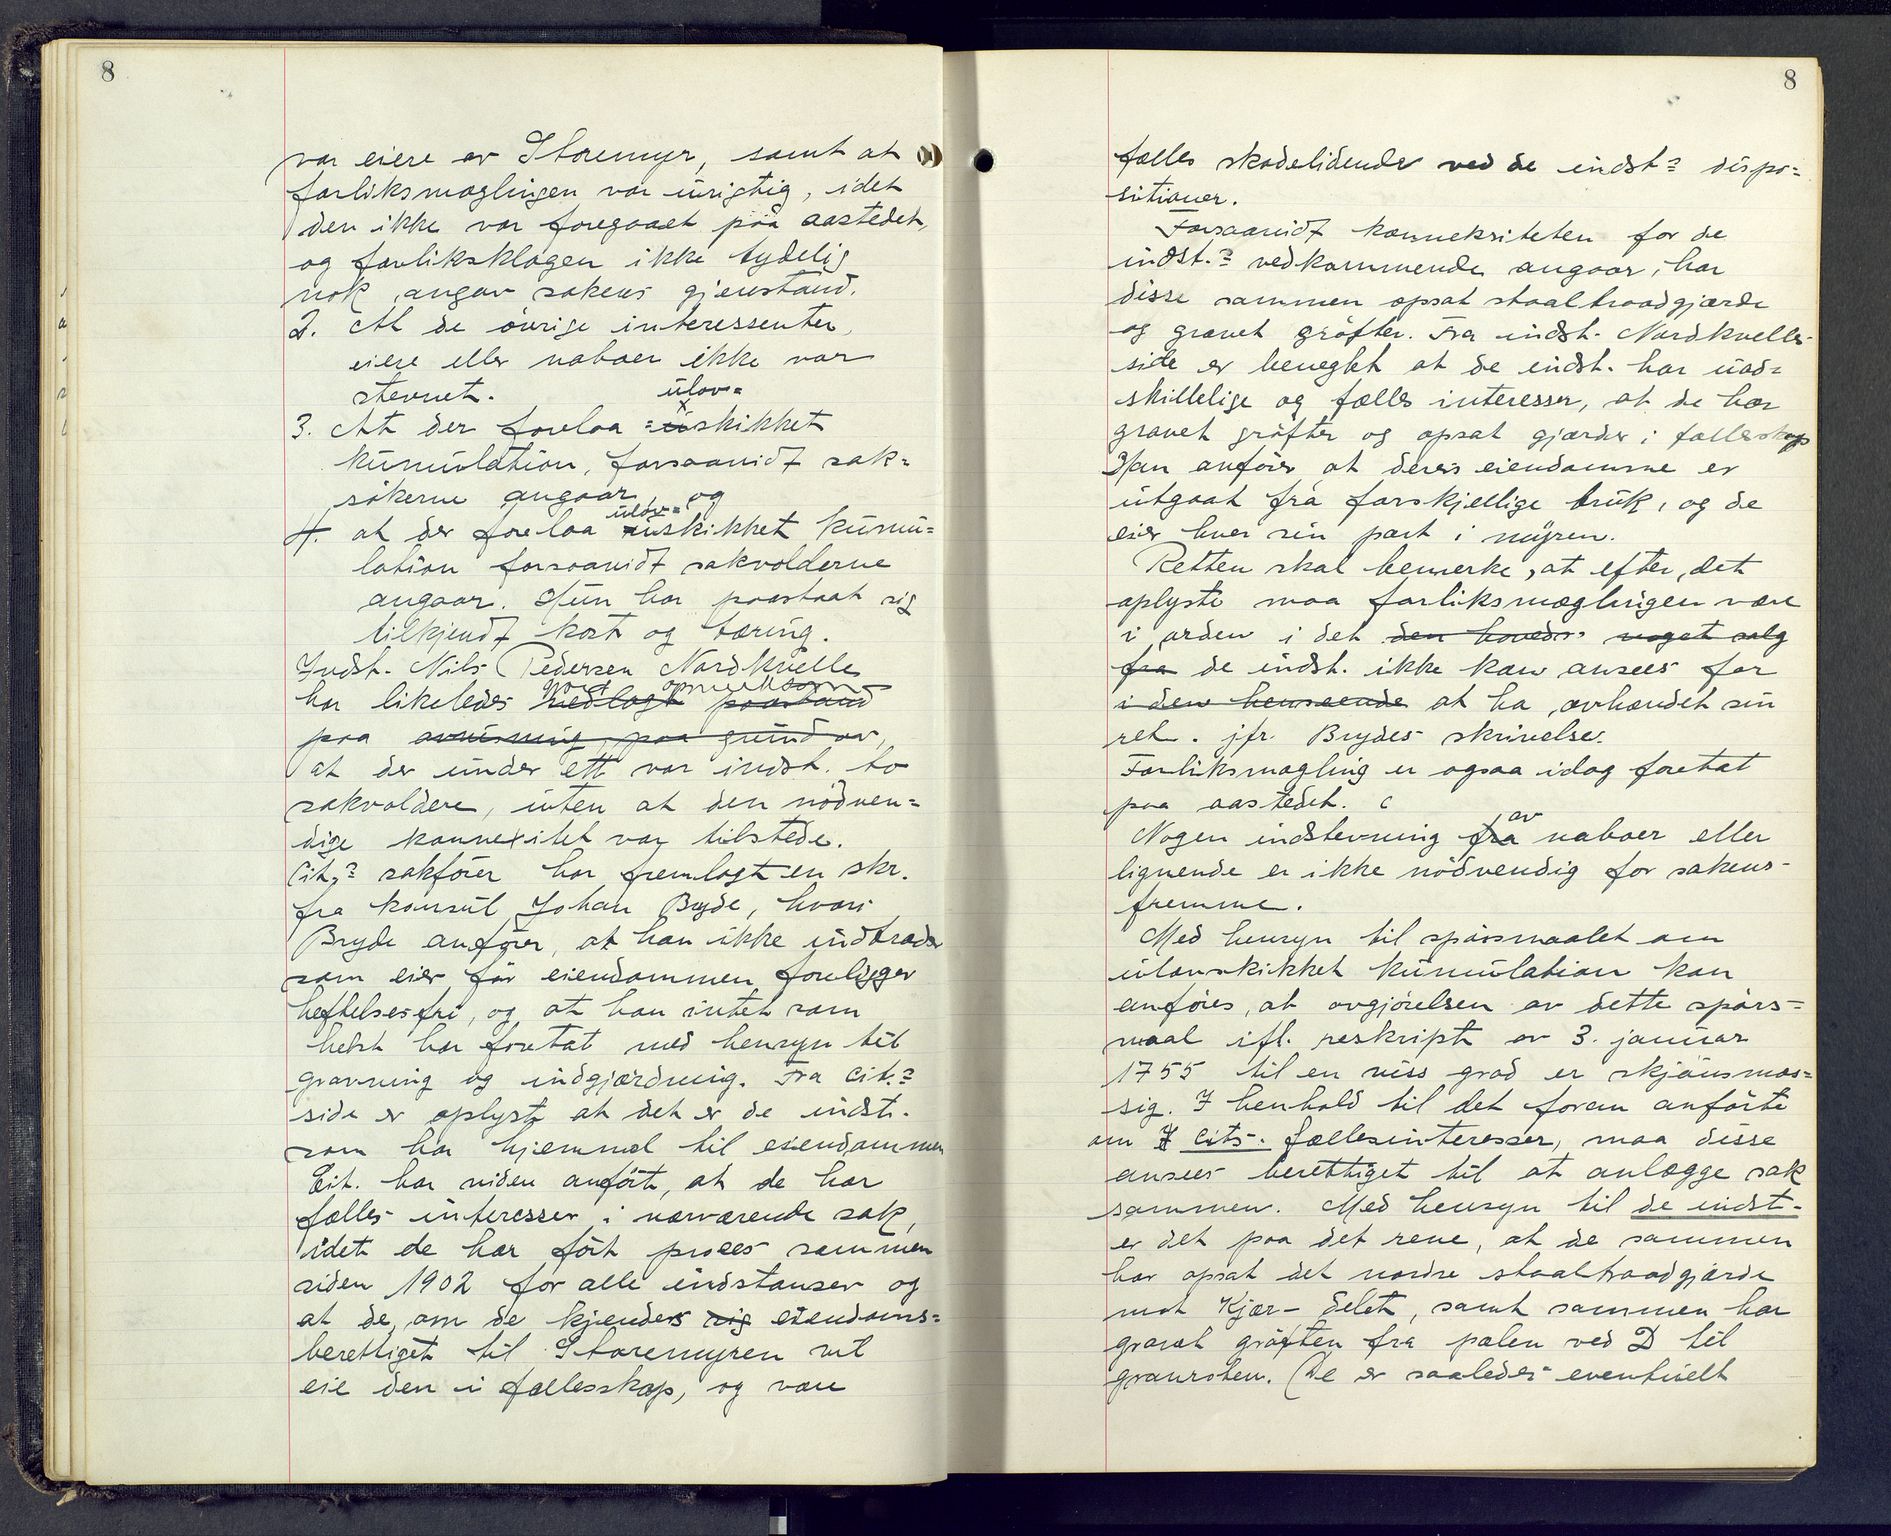 8
var eiere av Storemyr, samt at
forliksmæglingen var urigtig, idet
den ikke var foregaaet paa aastedet,
og forliksklagen ikke tydelig
nok angav sakens gjenstand.
2. At de övrige interessenter,
eiere eller naboer ikke var
stevnet.
ulov=
3. At der forelaa uskikket
kumulation, forsaavidt sak=
sökerne angaar, og
ulov=
4. at der forelaa uskikket kumu=
lation forsaavidt sakvolderne
angaar. Hun har paastaat sig
tilkjendt kost og tæring.
Indst. Nils Pedersen Nordkvelle
gjort opmerksom
har likeledes nedlagt paastand
paa avvisning paa grund av,
at der under ett var indst. to
sakvoldere, uten at den nödven=
dige konnexitet var tilstede.
Cit.s sakförer har fremlagt en skr.
fra konsul Johan Bryde, hvori
Bryde anförer, at han ikke indtræder
som eier för eiendommen foreligger
heftelsesfri, og at han intet som
helst har foretat med hensyn til
gravning og indgjærdning. Fra cit.s
side er oplyst at det er de indst.
som har hjemmel til eiendommen
Cit. har viden anfört, at de har
fælles interesser i nærværende sak,
idet de har fört proces sammen
siden 1902 for alle indstanser og
at de, om de kjendes sig eiendoms=
berettiget til Storemyren vil
eie den i fællesskap, og være
8
fælles skadelidende ved de indst.s dispo=
sitioner.
Forsaavidt konneksiteten for de
indst.s vedkommende angaar, har
disse sammen opsat staaltraadgjærde
og gravet gröfter. Fra indst. Nordkvelles
side er benegtet at de indst. har uad=
skillelige og fælles interesser, at de har
gravet gröfter og opsat gjærder i fællesskap
Han anförer at deres eiendomme er
utgaat fra forskjellige bruk, og de
eier hver sin part i myren.
Retten skal bemerke, at efter det
oplyste maa forliksmæglingen være
i orden i det den hoveds noget salg
fra de indst. ikke kan ansees for
i den henseende at ha avhændet sin
ret. jfr. Brydes skrivelse.
Forliksmægling er ogsaa idag foretat
paa aastedet.
av
Nogen indstevning fra naboer eller
lignende er ikke nödvendig for sakens
fremme.
Med hensyn til spörsmaalet om
ulovskikket kumulation kan
anföres, at avgjörelsen av dette spörs=
maal ifl. reskript av 3. januar
1755 til en viss grad er skjönsmæs=
sig. I henhold til det foran anförte
om cits. fællesinteresser, maa disse
ansees berettiget til at anlægge sak
sammen. Med hensyn til de indst.
er det paa det rene, at de sammen
har opsat det nordre staaltraadgjærde
mot Kjær-delet, samt sammen har
gravet gröften fra pælen ved D til
. (De er saaledes eventuelt